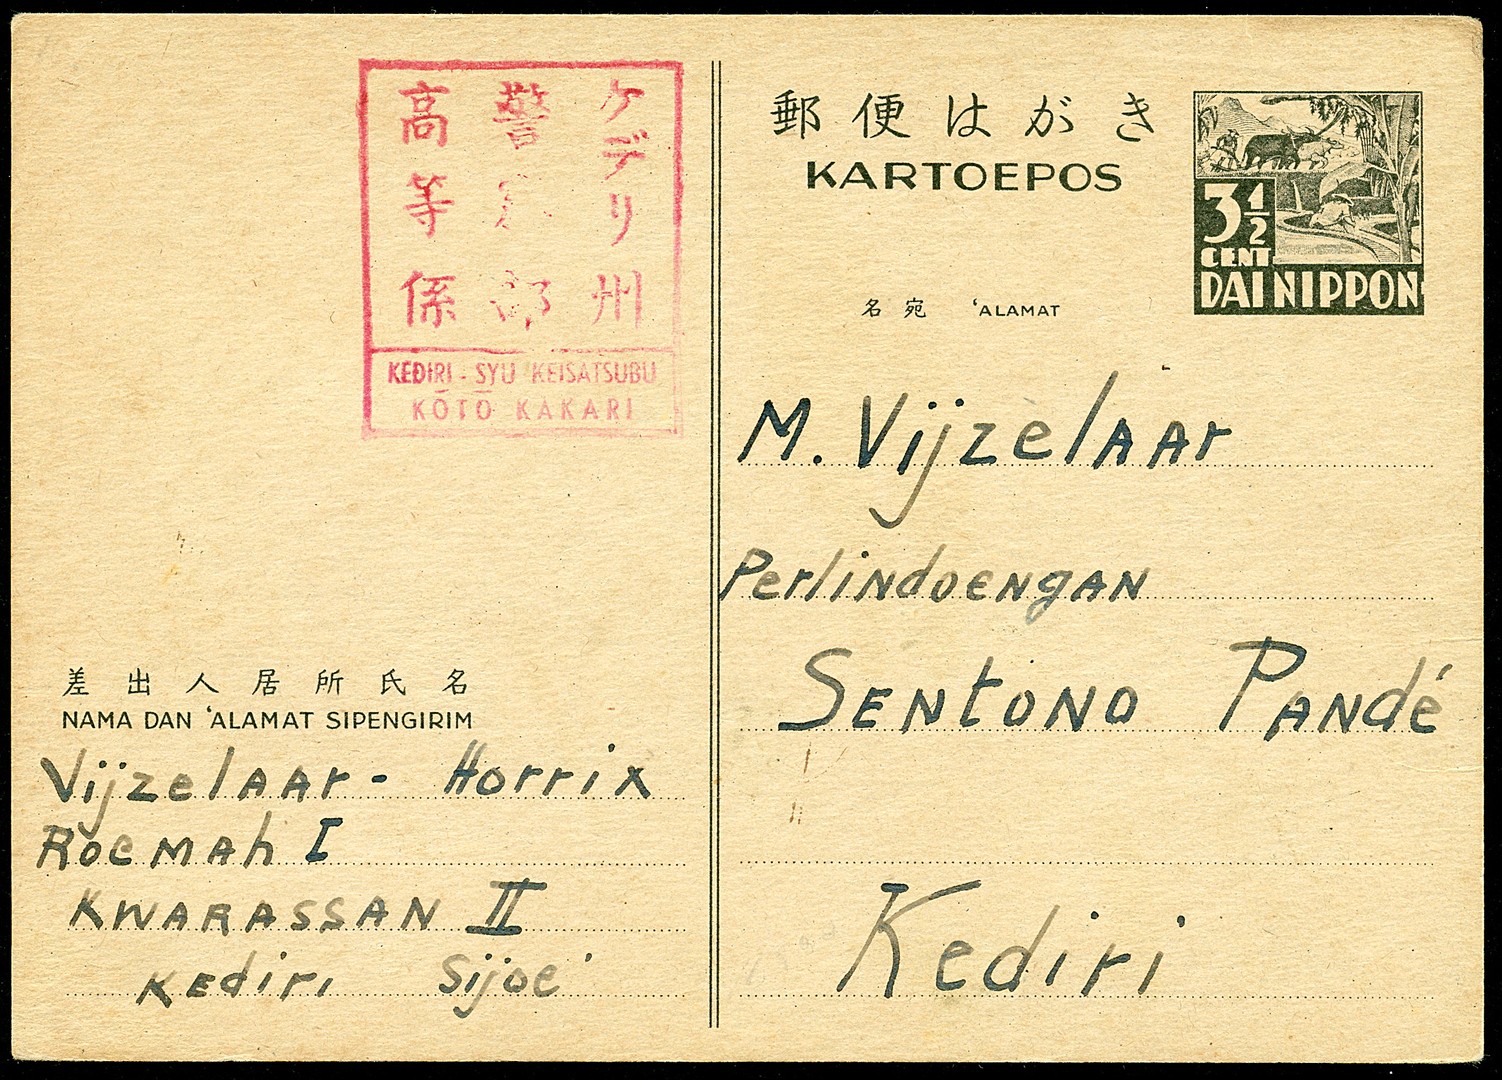 ケデリ州
警察部
高等係
KEDIRI - SYU KEISATSUBU
KŌTŌ KAKARI
郵便はがき
KARTOEPOS
3 1/2
CENT
DAI NIPPON
名宛 'ALAMAT
M. Vijzelaar
Perlindoengan
Sentono Pandé
Kediri
差出人居所氏名
NAMA DAN 'ALAMAT SIPENGIRIM
Vijzelaar - Horrix
Roemah I
Kwarassan II
Kediri Sijoe